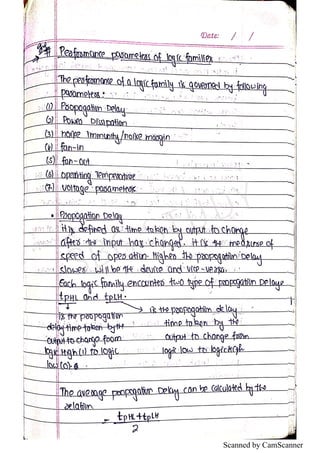 Date: / /
Peofromance parametras of logic families
The peofromance of a logic family is governed by following
parametres:
(1) Poopogation Delay
(2) Power Dissipation
(3) noise Immunity/noise margin
(4) fan-in
(5) fan-out
(6) operating Temprature
(7) voltage parametres
• Poopogation Delay
it is defined as time taken by output to change
after the input has changed. it is the measure of
speed of operation higher the poopogation Delay
slower will be the device and vice-versa.
Each logic family encounter two type of poopogation Delays
tpHL and tpLH.
is the poopogation
delay time taken by the
output to change from
logic High (1) to logic
low (0).
is the poopogation delay
time taken by the
output to change from
logic low to logic high
The average poopogation Delay can be calculated by the
relation
= tpHL + tpLH
2
Scanned by CamScanner